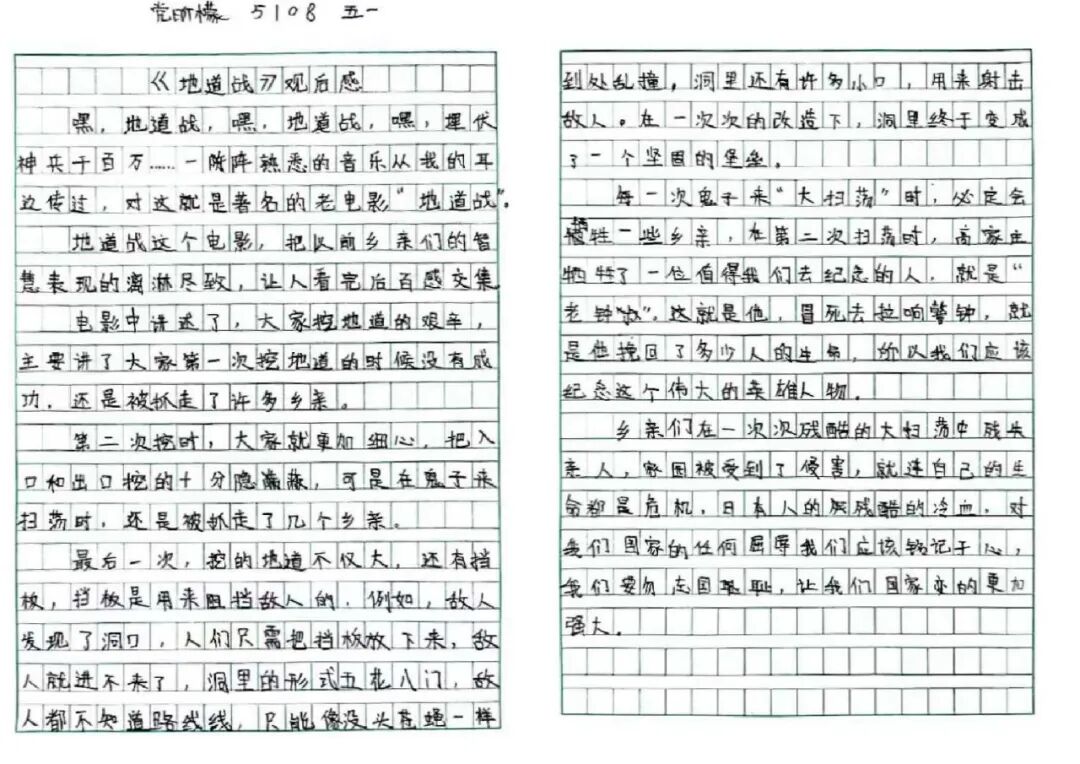 5108 五一
《地道战》观后感
嘿，地道战，嘿，地道战，嘿，埋伏
神兵千百万……一阵阵熟悉的音乐从我的耳
边传过，对这就是著名的老电影“地道战”。
地道战这个电影，把以前乡亲们的智
慧表现的漓淋尽致，让人看完后百感交集
电影中讲述了，大家挖地道的艰辛，
主要讲了大家第一次挖地道的时候没有成
功，还是被抓走了许多乡亲。
第二次挖时，大家就更加细心，把入
口和出口挖的十分隐蔽，可是在鬼子来
扫荡时，还是被抓走了几个乡亲。
最后一次，挖的地道不仅大，还有挡
板，挡板是用来阻挡敌人的，例如，敌人
发现了洞口，人们只需把挡板放下来，敌
人就进不来了，洞里的形式五花八门，敌
人都不知道路线线，只能像没头苍蝇一样
到处乱撞，洞里还有许多小口，用来射击
敌人。在一次次的改造下，洞里终于变成
了一个坚固的堡垒。
每一次鬼子来“大扫荡”时，必定会
牺牲一些乡亲，在第二次扫荡时，高家庄
牺牲了一位值得我们去纪念的人，就是“
老钟叔”，这就是他，冒死去拉响警钟，就
是他挽回了多少人的生命，所以我们应该
纪念这个伟大的英雄人物。
乡亲们在一次次残酷的大扫荡中残失
亲人，家园被受到了侵害，就连自己的生
命都是危机，日本人的残酷的冷血，对
我们国家的任何屈辱我们应该铭记于心，
我们要勿忘国耻，让我们国家变的更加
强大。